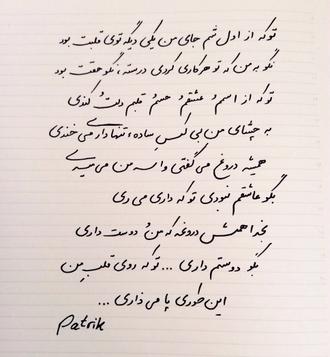 تو که از اول شم جای من یکی دیگه توی قلبت بود
نگو به من که تو هر کاری کردی درسته، نگو حقت بود
تو که از اسم و عشقم و حسم و قلبم دلتُ کندی
به چشمای من بی کس ساده، تنها داری می خندی
همیشه دروغ می گفتی واسه من می میری
بگو عاشقم نبودی تو که داری می ری
بخدا همش دروغه که منُ دوست داری
بگو دوستم داری ... تو که روی قلب من
این طوری پا می ذاری ...
Patrik